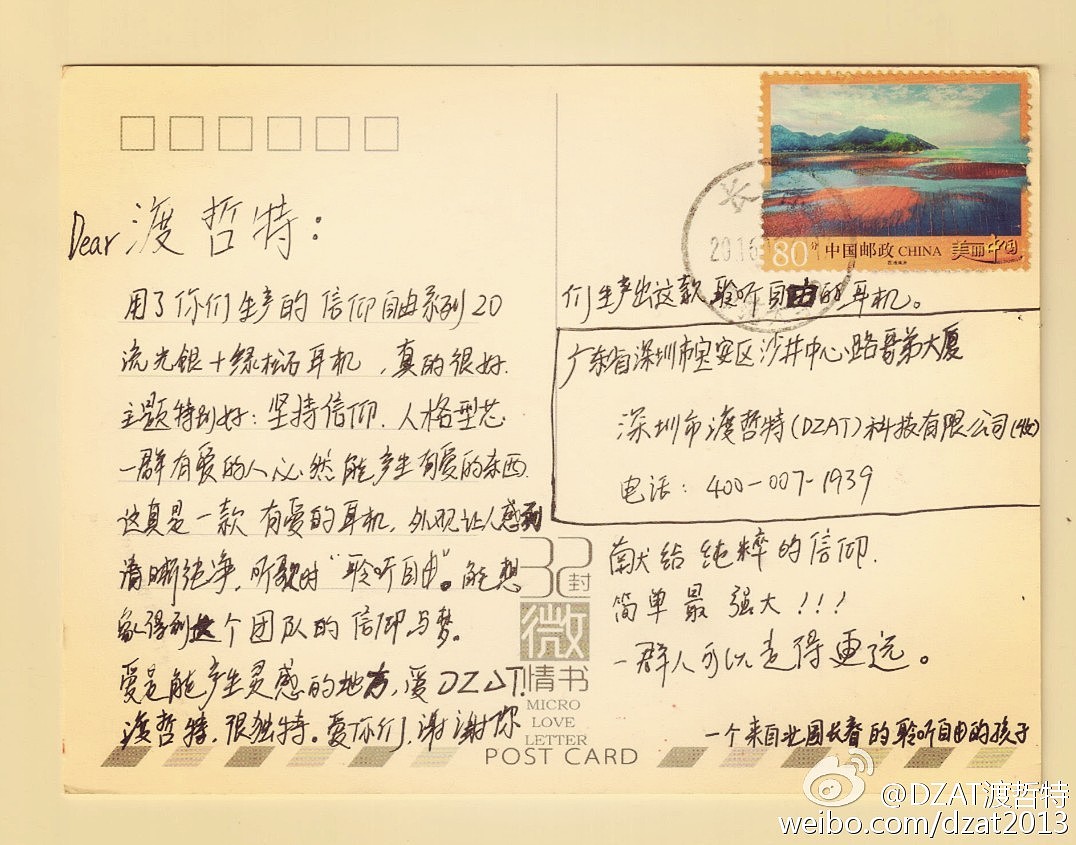 Dear 渡哲特：
用了你们生产的信仰自由系列20
流光银+绿松石耳机，真的很好.
主题特别好：坚持信仰. 人格型芯
一群有爱的人必然能产生有爱的东西.
这真是一款有爱的耳机，外观让人感到
清晰纯净，听歌时“聆听自由”。能想
象得到这个团队的信仰与梦。
爱是能产生灵感的地方，爱DZAT.
渡哲特，很独特。爱你们，谢谢你
们生产出这款聆听自由的耳机。
广东省深圳市宝安区沙井中心路哥弟大厦
深圳市渡哲特(DZAT)科技有限公司
电话：400-007-1939
献给纯粹的信仰.
简单最强大！！！
一群人可以走得更远。
一个来自北国长春的聆听自由的孩子
长
2016
80分 中国邮政 CHINA 美丽中国
32封
微
情书
MICRO
LOVE
LETTER
POST CARD
@DZAT渡哲特
weibo.com/dzat2013